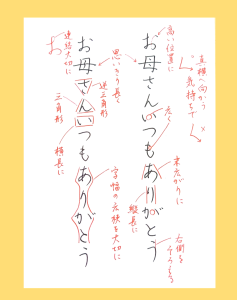 高い位置に
真横へ向かう
気持ちで
お母さんいつもありがとう
広く
末広がりに
縦長に
右側を
そろえる
思いきり長く
連結を大切に
お母さんいつもありがとう
逆三角形
三角形
横長に
字幅の広狭を大切に